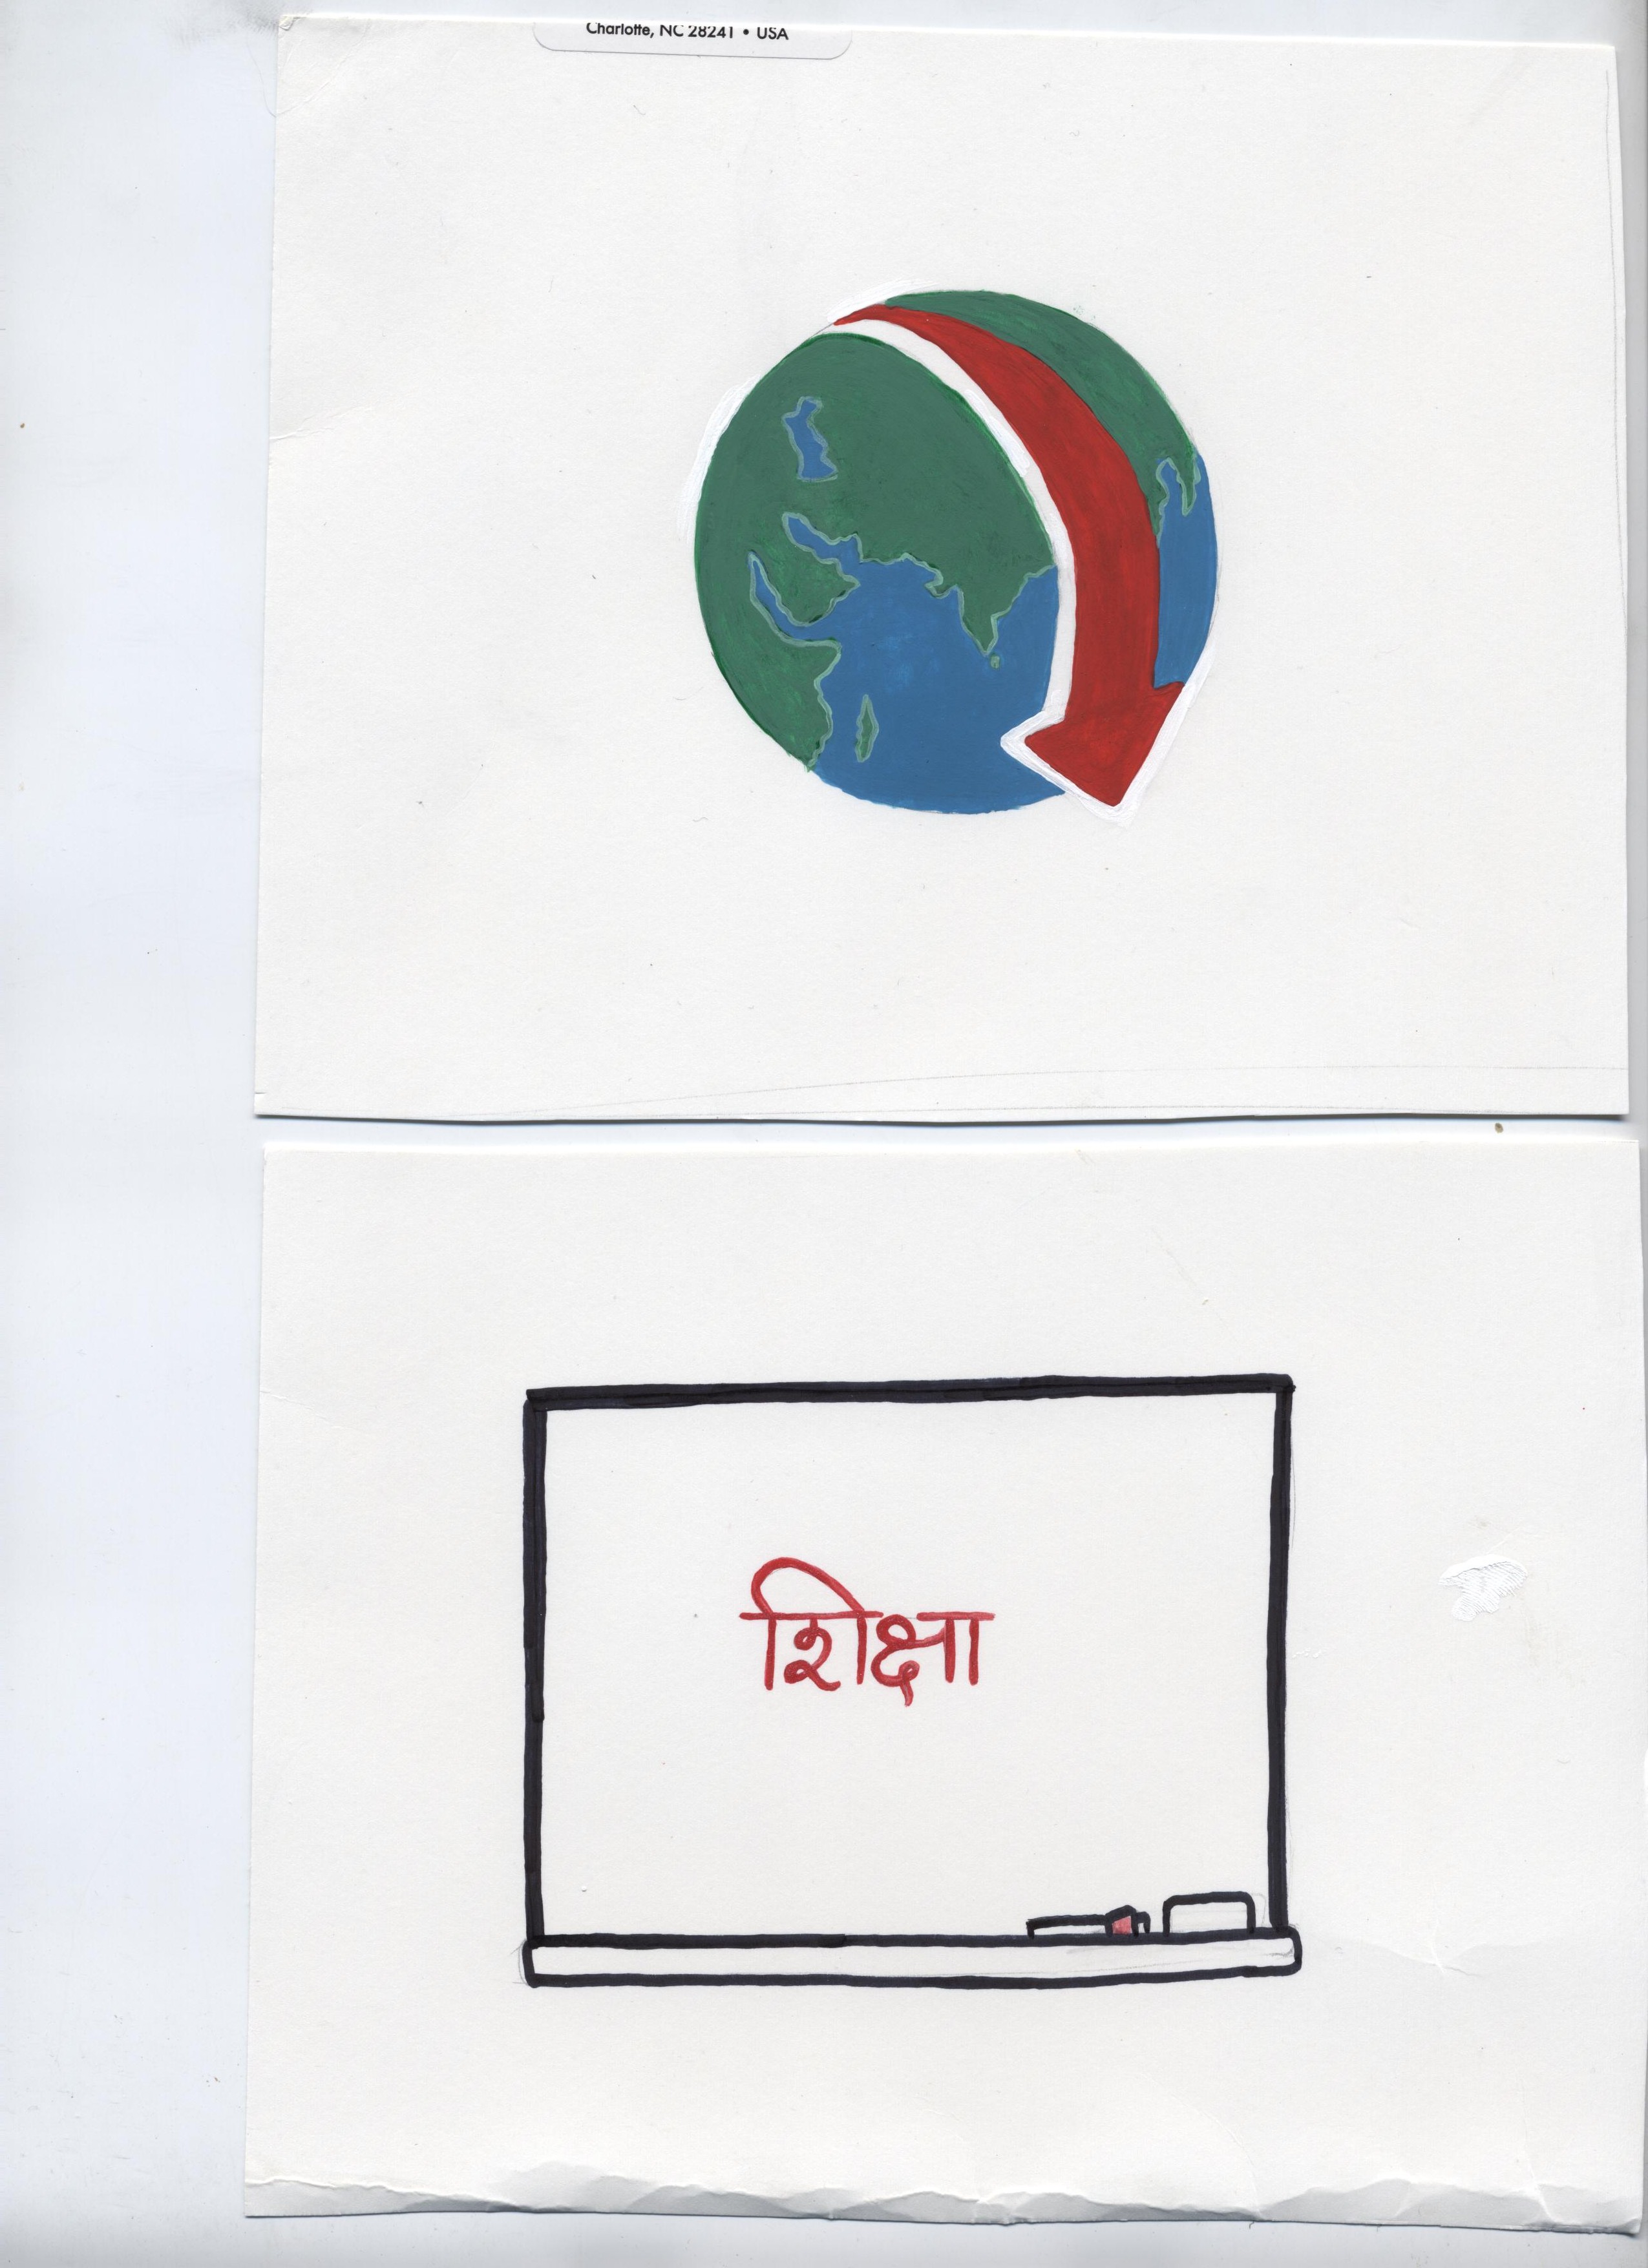 Charlotte, NC 28241 • USA
शिक्षा